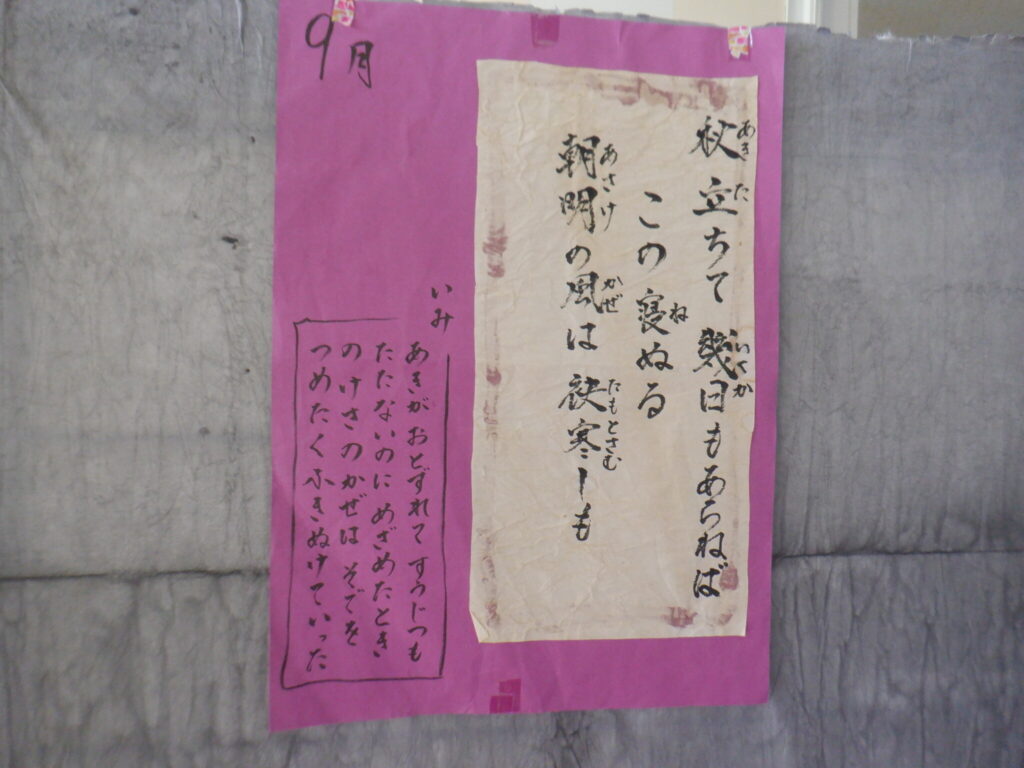 9月
秋立ちて幾日もあらねば
あき た いくか
この寝ぬる
ね
朝明の風は袂寒しも
あさけ かぜ たもとさむ
いみ
あきがおとずれて すうじつも
たたないのに めざめたとき
のけさのかぜは そでを
つめたくふきぬけていった